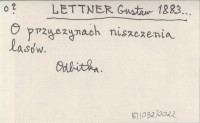 o? LETTNER Gustaw 1883...
O przyczynach niszczenia
lasów.
Odbitka.